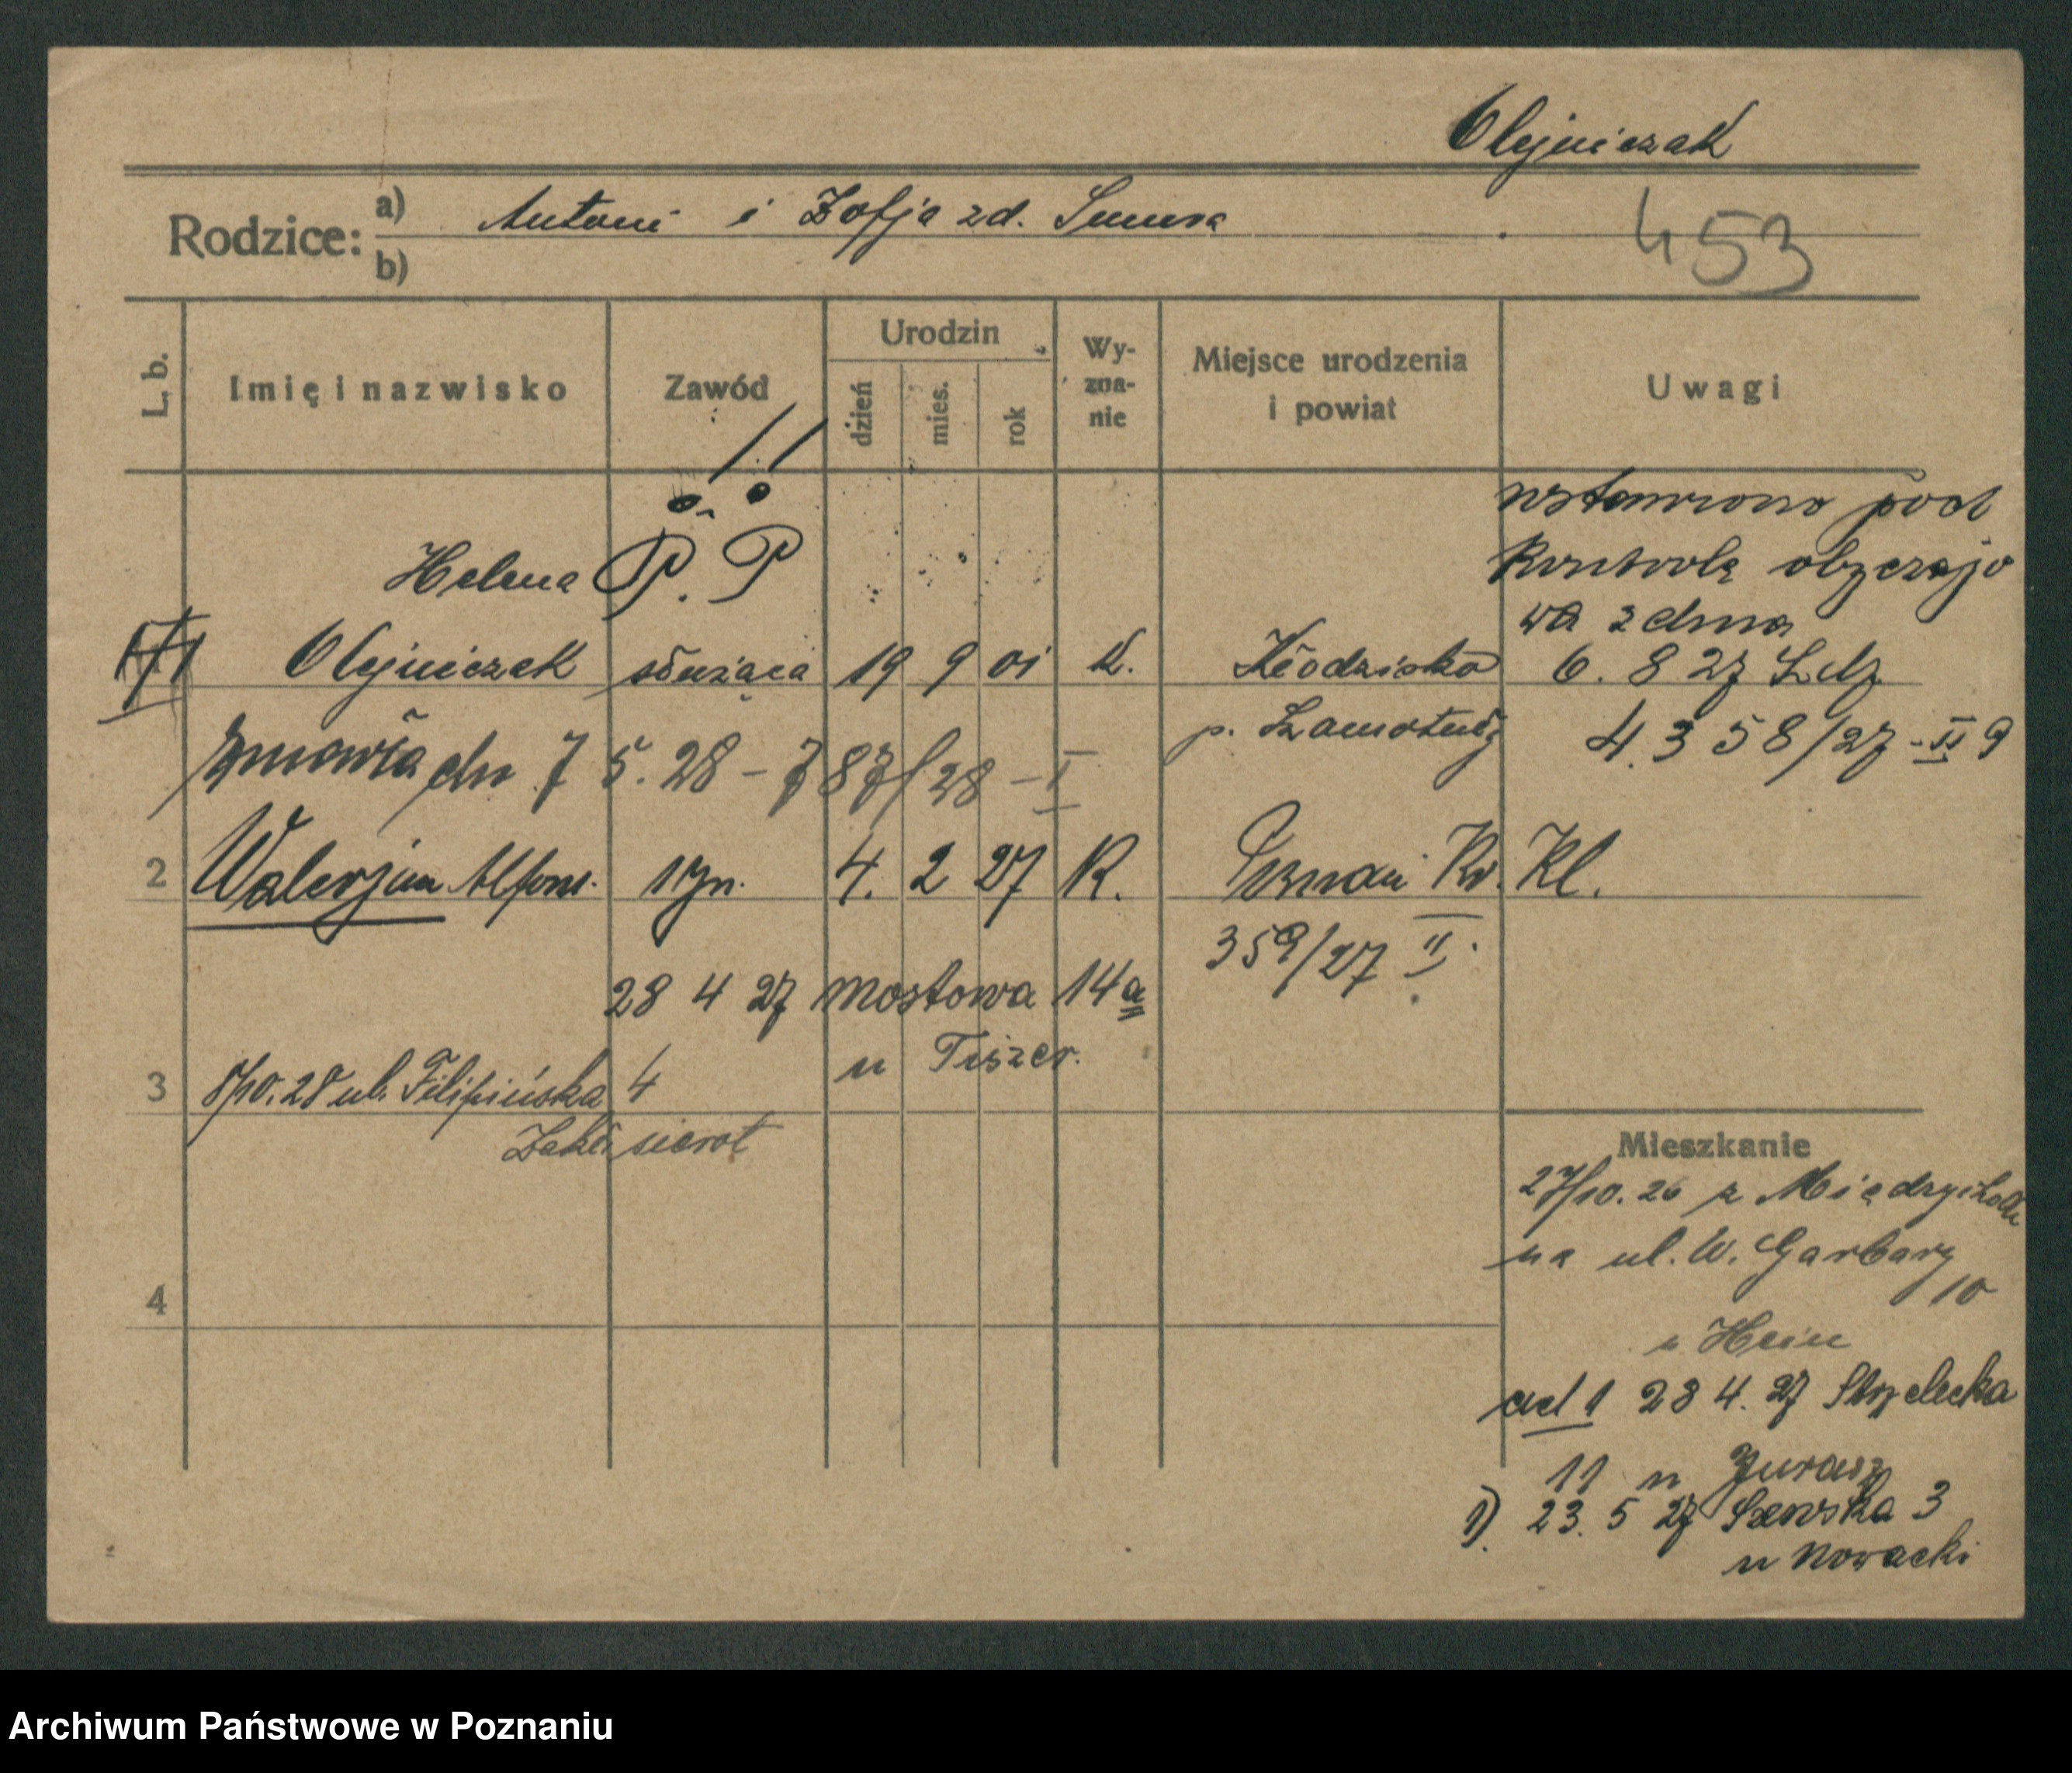 Olejniczak
Rodzice: a) Antoni i Zofja zd.
453
b)
L. b.
Imię i nazwisko
Zawód
Urodzin
dzień
mies.
rok
Wy-
zna-
nie
Miejsce urodzenia
i powiat
Uwagi
!!
Helena P. P
wstawiono pod
Kontrolę obyczajo
wa z dnia
1 Olejniczak służąca 19 9 01 K. Kłodzisko 6. 8 27 L dz
p. Szamotuły 4358/27-II 9
zmarła dn 7 5. 28 - 787/28 - I
2 Walerjan Alfons. syn. 4. 2 27 K. Poznań Kr. Kl.
359/27 II.
28 4 27 Mostowa 14a
u Tiszer.
3 8/10.28 ul. Filipińska 4
Zakł sierot
4
Mieszkanie
27/10. 26 z Międzychodu
na ul. W. Garbary
10
u Hein
ad 1 28 4. 27 Strzelecka
11 u Jurasz
1) 23. 5 27 Szewska 3
u Nowacki
Archiwum Państwowe w Poznaniu